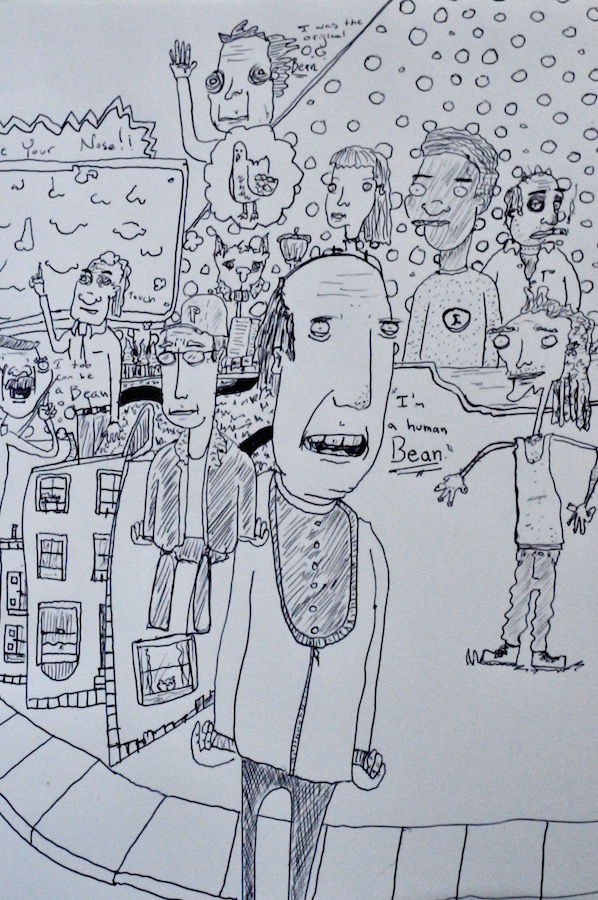 "I was the
original
OG
Bean."
e Your Nose!!
Touch
I too
can be
a Bean
P
"I'm
a human
Bean."